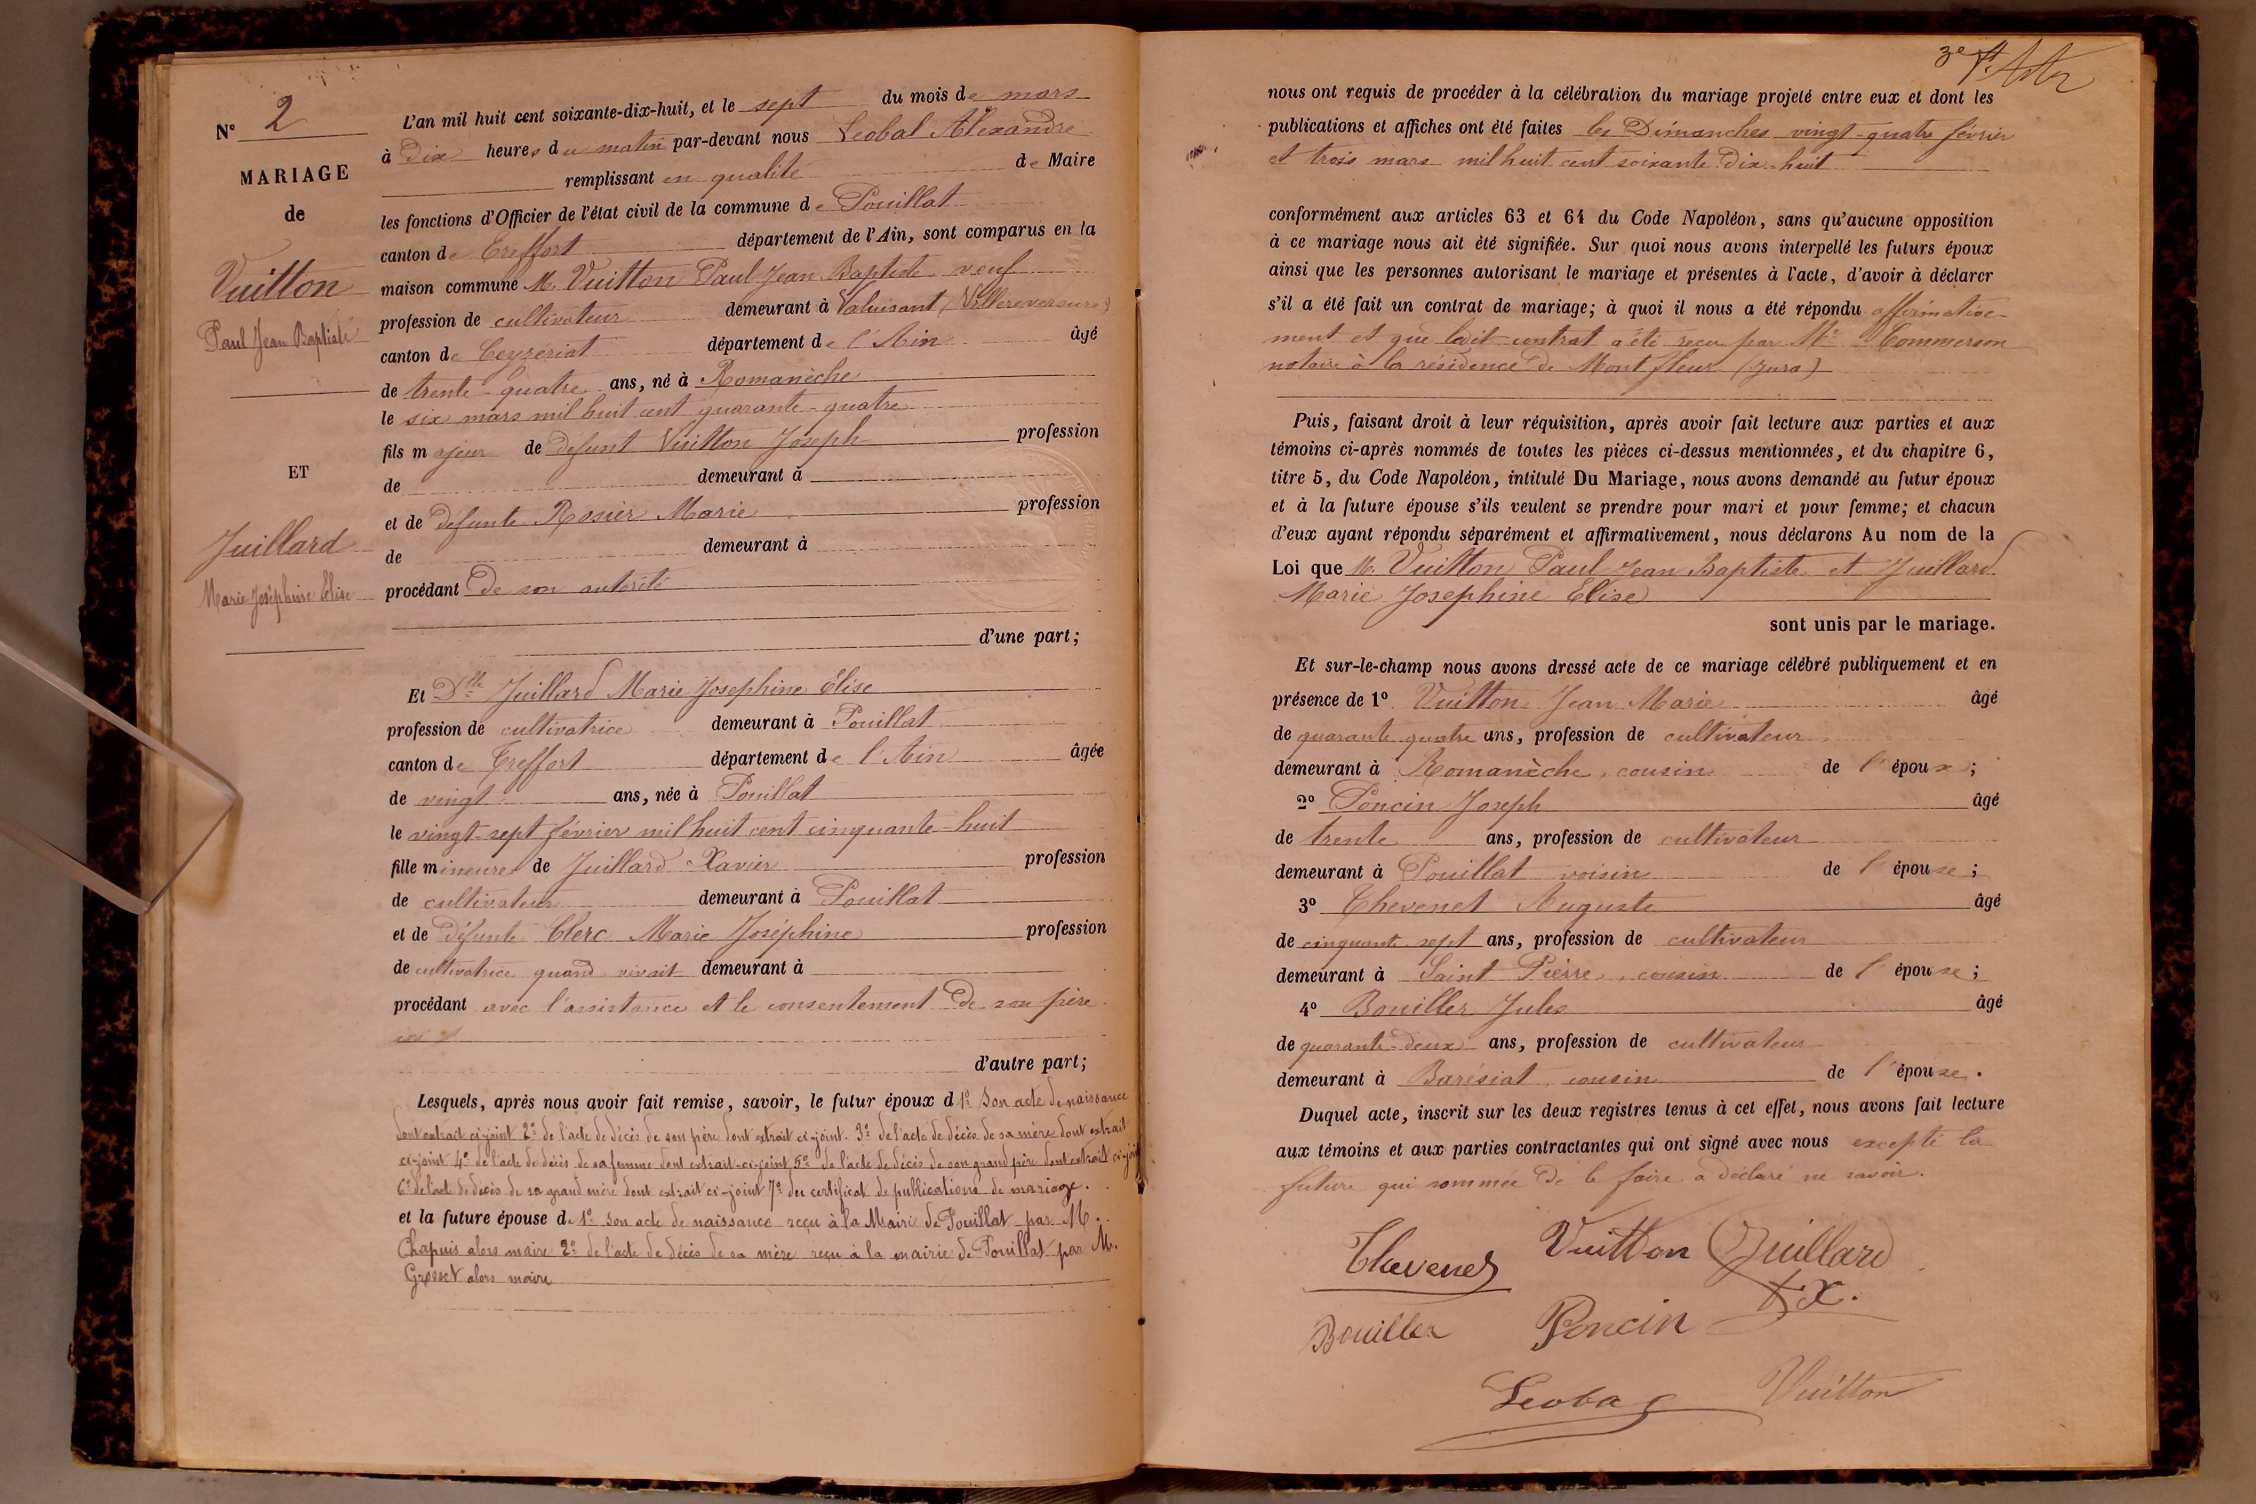 N° 2
MARIAGE
de
Vuitton
Paul Jean Baptiste
ET
Juillard
Marie Joséphine Elise
L'an mil huit cent soixante-dix-huit, et le sept du mois de mars
à Dix heures du matin par-devant nous Leobal Alexandre
remplissant en qualité de Maire
les fonctions d'Officier de l'état civil de la commune de Pouillat
canton de Treffort département de l'Ain, sont comparus en la
maison commune M. Vuitton Paul Jean Baptiste veuf
profession de cultivateur demeurant à Valuisant (Villereversure)
canton de Ceyzeriat département de l'Ain âgé
de trente-quatre ans, né à Romanèche
le six mars mil huit cent quarante-quatre
fils majeur de defunt Vuitton Joseph profession
de demeurant à
et de défunte Rosier Marie profession
de demeurant à
procédant De son autorité
d'une part;
Et Dlle Juillard Marie Josephine Elise
profession de cultivatrice demeurant à Pouillat
canton de Treffort département de l'Ain âgée
de vingt ans, née à Pouillat
le vingt-sept février mil huit cent cinquante-huit
fille mineure de Juillard Xavier profession
de cultivateur demeurant à Pouillat
et de Défunte Clerc Marie Joséphine profession
de cultivatrice quand vivait demeurant à
procédant avec l'assistance et le consentement De son père
d'autre part;
Lesquels, après nous avoir fait remise, savoir, le futur époux d 1° Son acte de naissance
dont extrait ci-joint 2° de l'acte de décès de son père dont extrait ci-joint. 3° de l'acte de décès de sa mère dont extrait
ci-joint 4° de l'acte de décès de sa femme dont extrait-ci-joint 5° de l'acte de décès de son grand père dont extrait ci-joint
6° de l'acte de décès de sa grand mère dont extrait ci-joint 7° du certificat de publications de mariage.
et la future épouse de 1° Son acte de naissance reçu à la Mairie de Pouillat par M.
Chapuis alors maire 2° de l'acte de décès de sa mère reçu à la mairie de Pouillat par M.
Grosset alors maire
3e
nous ont requis de procéder à la célébration du mariage projeté entre eux et dont les
publications et affiches ont été faites les Dimanches vingt-quatre février
et trois mars mil huit cent soixante Dix-huit
conformément aux articles 63 et 64 du Code Napoléon, sans qu'aucune opposition
à ce mariage nous ait été signifiée. Sur quoi nous avons interpellé les futurs époux
ainsi que les personnes autorisant le mariage et présentes à l'acte, d'avoir à déclarer
s'il a été fait un contrat de mariage; à quoi il nous a été répondu affirmative-
ment et que ledit contrat a été reçu par Me Commerson
notaire à la résidence de Mont fleur (Jura)
Puis, faisant droit à leur réquisition, après avoir fait lecture aux parties et aux
témoins ci-après nommés de toutes les pièces ci-dessus mentionnées, et du chapitre 6,
titre 5, du Code Napoléon, intitulé Du Mariage, nous avons demandé au futur époux
et à la future épouse s'ils veulent se prendre pour mari et pour femme; et chacun
d'eux ayant répondu séparément et affirmativement, nous déclarons Au nom de la
Loi que M. Vuitton Paul Jean Baptiste et Juillard
Marie Josephine Elise
sont unis par le mariage.
Et sur-le-champ nous avons dressé acte de ce mariage célébré publiquement et en
présence de 1° Vuitton Jean Marie âgé
de quarante quatre ans, profession de cultivateur
demeurant à Romanèche, cousin de l'époux;
2° Poncin Joseph âgé
de trente ans, profession de cultivateur
demeurant à Pouillat voisin de l'épouse;
3° Thevenet Auguste âgé
de cinquante sept ans, profession de cultivateur
demeurant à Saint Pierre, cousin de l'épouse;
4° Bouiller Jules âgé
de quarante-deux ans, profession de cultivateur
demeurant à Barésiat cousin de l'épouse.
Duquel acte, inscrit sur les deux registres tenus à cet effet, nous avons fait lecture
aux témoins et aux parties contractantes qui ont signé avec nous excepté la
future qui sommée de le faire a déclaré ne savoir.
Thevenet Vuitton Juillard
fx.
Bouiller Poncin
Leobal Vuitton